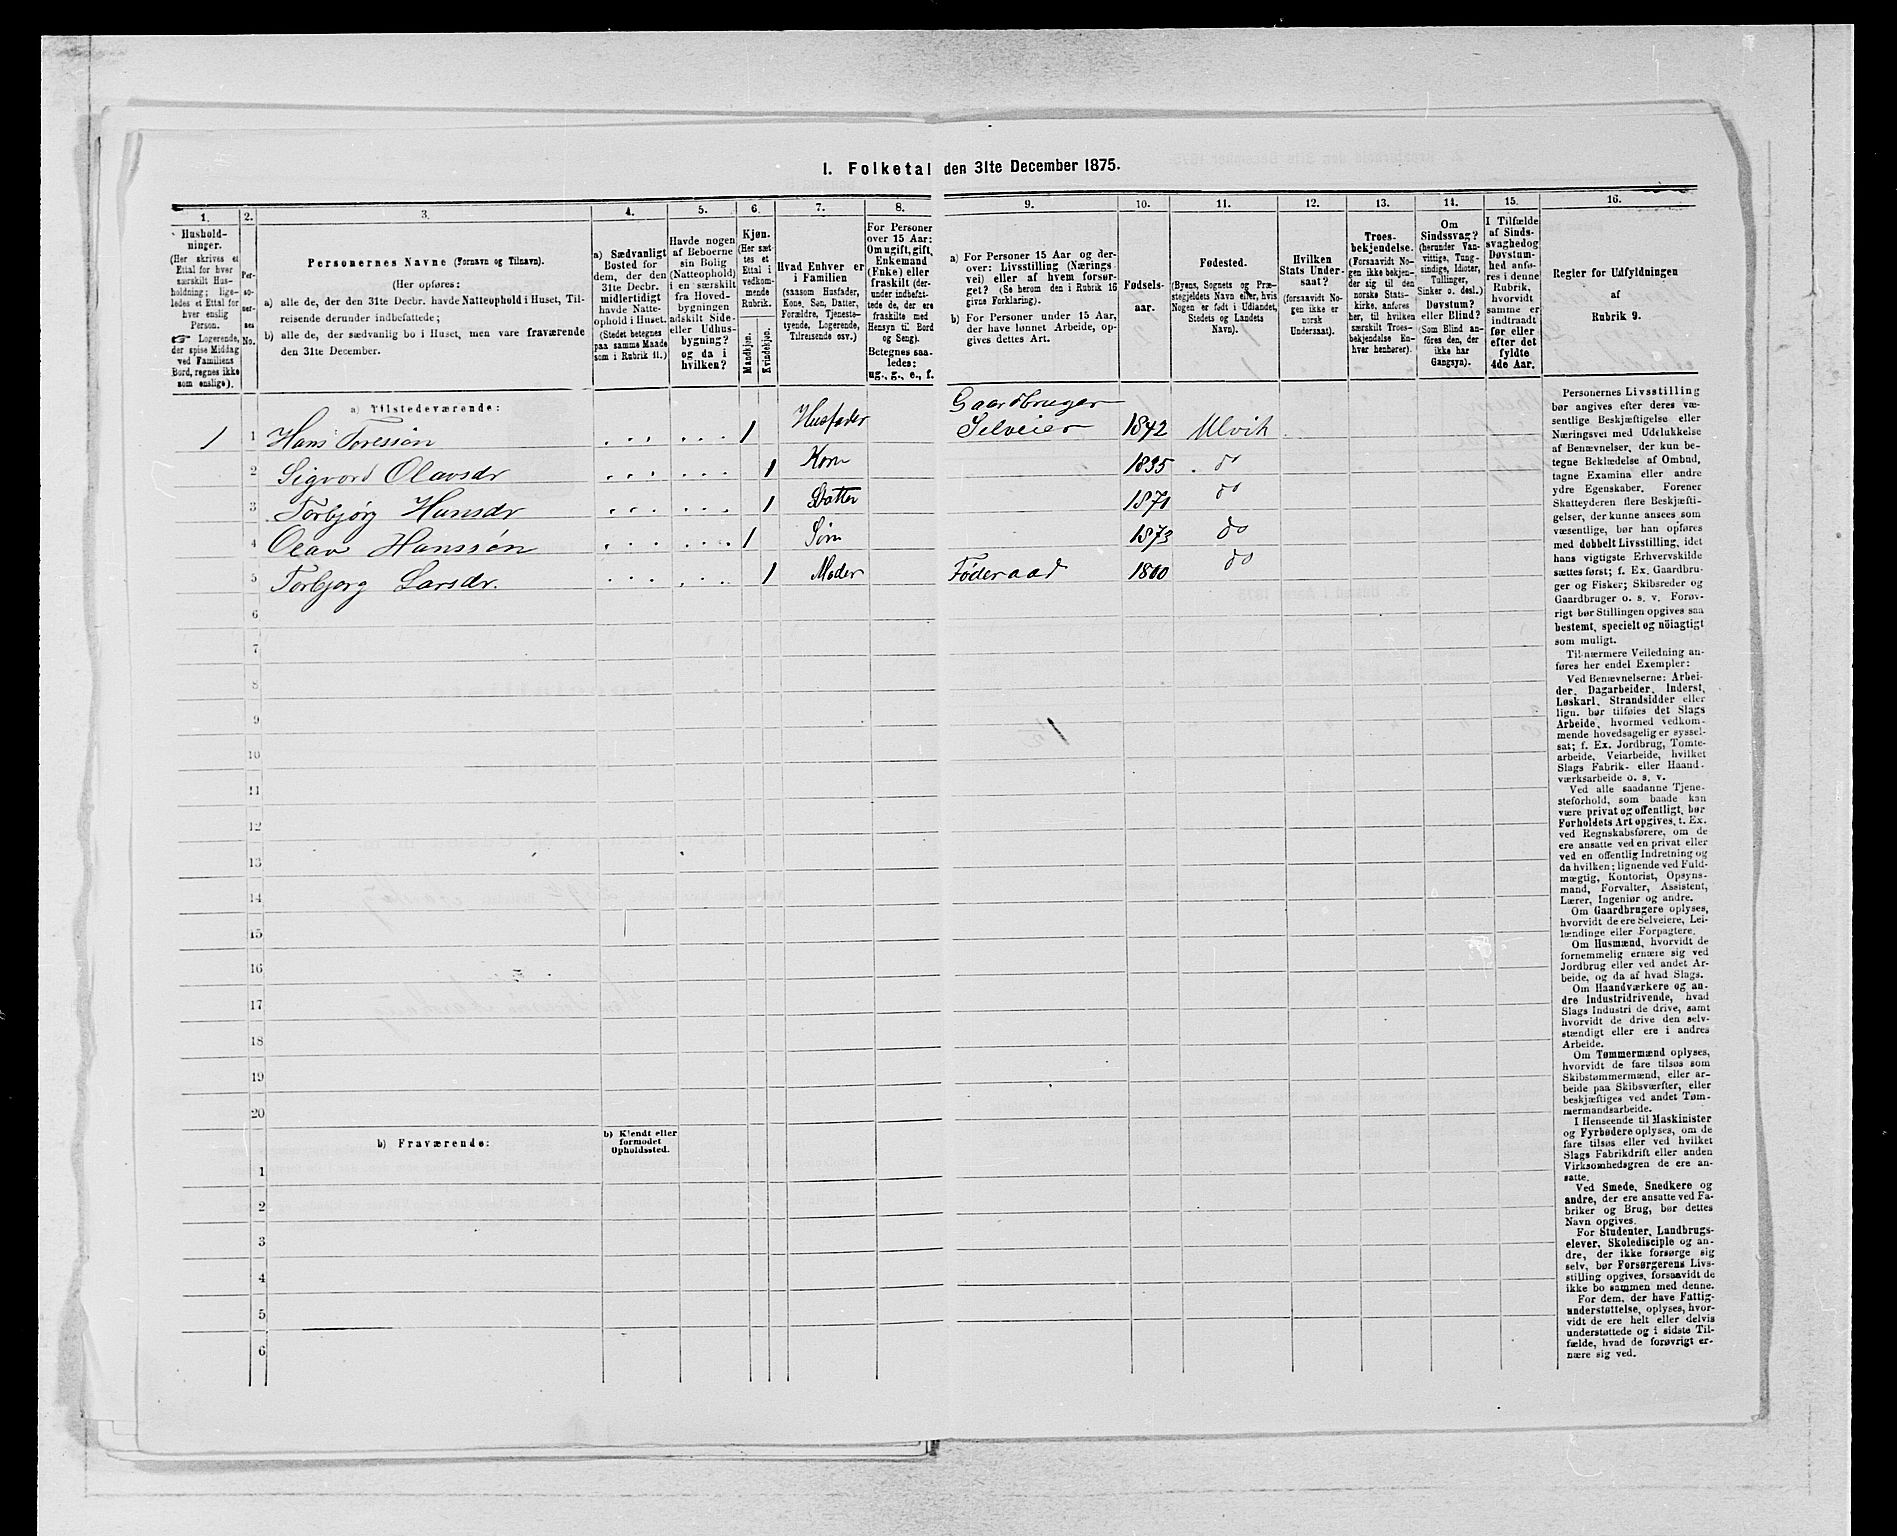 I. Folketal den 31te December 1875.
1. 2. 3. 4. 5. 6. 7. 8. 9. 10. 11. 12. 13. 14. 15. 16.
Hushold-
ninger.
(Her skrives et
Ettal for hver
særskilt Hus-
holdning; lige-
ledes et Ettal for
hver enslig
Person.
☞ Logerende,
der spise Middag
ved Familiens
Bord, regnes ikke
som enslige).
Per-
so-
ner-
nes
No.
Personernes Navne (Fornavn og Tilnavn).
(Her opføres:
a) alle de, der den 31te Decbr. havde Natteophold i Huset, Til-
reisende derunder indbefattede;
b) alle de, der sædvanlig bo i Huset, men vare fraværende
den 31te December.
a) Sædvanligt
Bosted for
dem, der den
31te Decbr.
midlertidigt
havde Natte-
ophold i Huset.
(Stedet betegnes
paa samme Maade
som i Rubrik 11.)
Havde nogen
af Beboerne
sin Bolig
(Natteophold)
i en særskilt
fra Hoved-
bygningen
adskilt Side-
eller Udhus-
bygning?
og da i
hvilken?
Kjøn.
(Her sæt-
tes et
Ettal i
vedkom-
mende
Rubrik.
Mandkjøn.
Kvindekjøn.
Hvad Enhver er
i Familien
(saasom Husfader,
Kone, Søn, Datter,
Forældre, Tjeneste-
tyende, Logerende,
Tilreisende osv.)
For Personer
over 15 Aar:
Om ugift, gift,
Enkemand
(Enke) eller
fraskilt (der-
under indbefat-
tede de, der ere
fraskilte med
Hensyn til Bord
og Seng).
Betegnes saa-
ledes:
ug., g., e., f.
a) For Personer 15 Aar og der-
over: Livsstilling (Nærings-
vei) eller af hvem forsør-
get? (Se herom den i Rubrik 16
givne Forklaring).
b) For Personer under 15 Aar,
der have lønnet Arbeide, op-
gives dettes Art.
Fødsels-
aar.
Fødested.
(Byens, Sognets og Præ-
stegjeldets Navn eller, hvis
Nogen er født i Udlandet,
Stedets og Landets
Navn).
Hvilken
Stats Under-
saat?
(forsaavidt No-
gen ikke er
norsk
Undersaat).
Troes-
bekjendelse.
(Forsaavidt No-
gen ikke bekjen-
der sig til den
norske Stats-
kirke, anføres
her, til hvilken
særskilt Troes-
bekjendelse En-
hver henhører).
Om
Sindssvag?
(herunder Van-
vittige, Tung-
sindige, Idioter,
Tullinger,
Sinker o. desl.)
Døvstum?
eller Blind?
(Som Blind an-
føres den, der
ikke har
Gangsyn).
I Tilfælde
af Sinds-
svaghed og
Døvstum-
hed anfø-
res i denne
Rubrik,
hvorvidt
samme er
indtraadt
før eller
efter det
fyldte
4de Aar.
Regler for Udfyldningen
af
Rubrik 9.
a) Tilstedeværende:
1 1 Hans Toressøn 1 Husfader Gaardbruger Selveier 1842 Ulvik
2 Sigvord Olavsdr 1 Kone 1835 do
3 Torbjørg Hansdr 1 Datter 1871 do
4 Olav Hanssøn 1 Søn 1873 do
5 Torbjorg Larsdr. 1 Moder Føderaad 1800 do
6
7
8
9
10
11
12
13
14
15
16
17
18
19
20
b) Fraværende:
b) Kjendt eller
formodet
Opholdssted.
1
2
3
4
5
6
Personernes Livsstilling
bør angives efter deres væ-
sentlige Beskjæftigelse eller
Næringsvei med Udelukkelse
af Benævnelser, der kun be-
tegne Beklædelse af Ombud,
tagne Examina eller andre
ydre Egenskaber. Forener
Skatteyderen flere Beskjæfti-
gelser, der kunne ansees som
væsentlige, bør han opføres
med dobbelt Livsstilling, idet
hans vigtigste Erhvervskilde
sættes først; f. Ex. Gaardbru-
ger og Fisker; Skibsreder og
Gaardbruger o. s. v. Forøv-
rigt bør Stillingen opgives saa
bestemt, specielt og nöiagtigt
som muligt.
Til nærmere Veiledning an-
føres her endel Exempler:
Ved Benævnelserne: Arbei-
der, Dagarbeider, Inderst,
Løskarl, Strandsidder eller
lign. bør tilføies det Slags
Arbeide, hvormed vedkom-
mende hovedsagelig er syssel-
sat; f. Ex. Jordbrug, Tomte-
arbeide, Veiarbeide, hvilket
Slags Fabrik- eller Haand-
værksarbeide o. s. v.
Ved alle saadanne Tjene-
steforhold, som baade kan
være privat og offentligt, bør
Forholdets Art opgives, t. Ex.
ved Regnskabsførere, om de
ere ansatte ved en privat eller
ved en offentlig Indretning og
da hvilken; lignende ved Fuld-
mægtig, Kontorist, Opsyns-
mand, Forvalter, Assistent,
Lærer, Ingeniør og andre.
Om Gaardbrugere oplyses,
hvorvidt de ere Selveiere, Lei-
lændinge eller Forpagtere.
Om Husmænd, hvorvidt de
fornemmelig ernære sig ved
Jordbrug eller ved andet Ar-
beide, og da af hvad Slags.
Om Haandværkere og an-
dre Industridrivende, hvad
Slags Industri de drive, samt
hvorvidt de drive den selv-
stændigt eller ere i andres
Arbeide.
Om Tømmermænd oplyses,
hvorvidt de fare tilsøs som
Skibstømmermænd, eller ar-
beide paa Skibsværfter, eller
beskjæftiges ved andet Tøm-
mermandsarbeide.
I Henseende til Maskinister
og Fyrbødere oplyses, om de
fare tilsøs eller ved hvilket
Slags Fabrikdrift eller anden
Virksomhedsgren de ere an-
satte.
Ved Smede, Snedkere og
andre, der ere ansatte ved Fa-
briker og Brug, bør dettes
Navn opgives.
For Studenter, Landbrugs-
elever, Skoledisciple og an-
dre, der ikke forsørge sig
selv, bør Forsørgerens Livs-
stilling opgives, forsaavidt de
ikke bo sammen med denne.
For dem, der have Fattig-
understøttelse, oplyses, hvor-
vidt de ere helt eller delvis
understøttede og i sidste Til-
fælde, hvad de forøvrigt er-
nære sig ved.